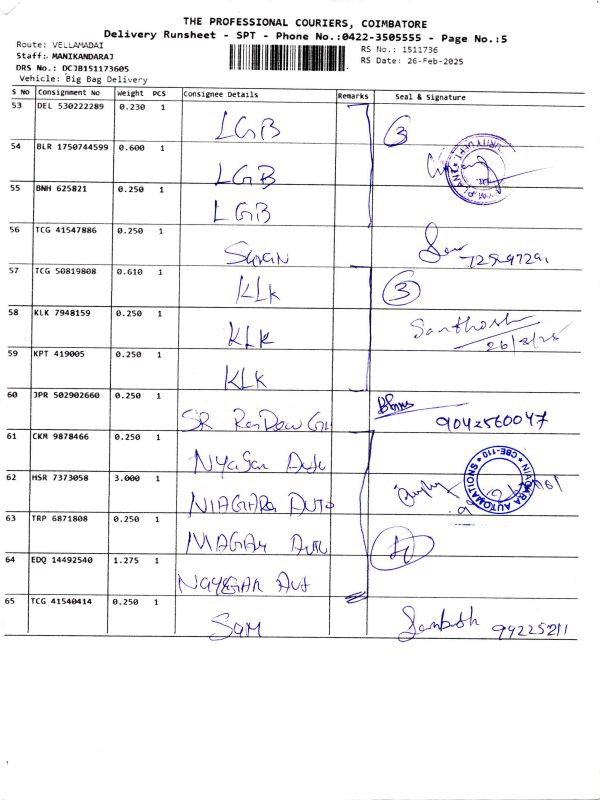 THE PROFESSIONAL COURIERS, COIMBATORE
Delivery Runsheet - SPT - Phone No.:0422-3505555 - Page No.:5
Route: VELLAMADAI
RS No.: 1511736
Staff: MANIKANDARAJ
RS Date: 26-Feb-2025
DRS No.: DCJB151173605
Vehicle: Big Bag Delivery
S No Consignment No Weight PCS Consignee Details Remarks Seal & Signature
53 DEL 530222289 0.230 1 LGB 3
54 BLR 1750744599 0.600 1 LGB
55 BNH 625821 0.250 1 LGB
56 TCG 41547886 0.250 1
57 TCG 50819808 0.610 1 KLK 3
58 KLK 7948159 0.250 1 KLK Santhosh
26/2/25
59 KPT 419005 0.250 1 KLK
60 JPR 502902660 0.250 1 SR 9042560047
61 CKM 9878466 0.250 1 Nyagar Auto
NIAGARA AUTOMATIONS * CBE-110 *
62 HSR 7373058 3.000 1 NIAGARA AUTO
63 TRP 6871808 0.250 1 Auto
64 EDQ 14492540 1.275 1
65 TCG 41540414 0.250 1 Sam